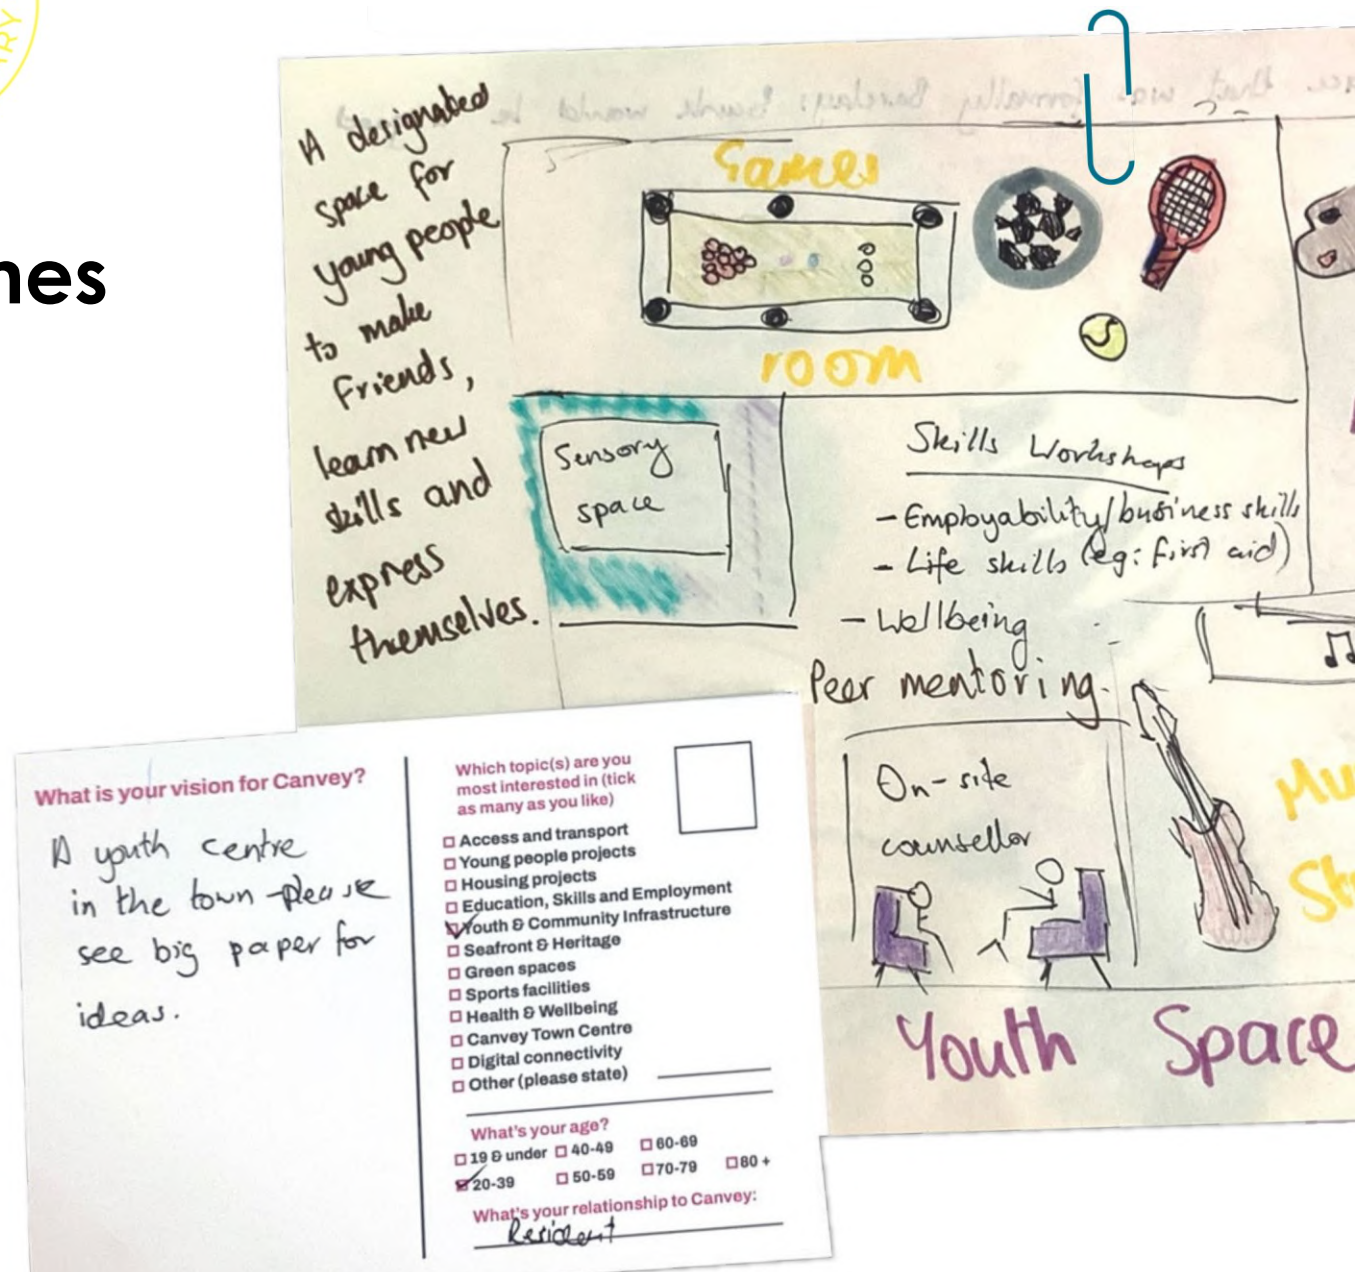 A designated
space for
young people
to make
Friends,
learn new
skills and
express
themselves.
Games
room
Sensory
space
Skills Workshops
- Employability/business skills
- Life skills (eg: first aid)
- Wellbeing
Peer mentoring.
On-site
counsellor
Youth Space
What is your vision for Canvey?
A youth centre
in the town - please
see big paper for
ideas.
Which topic(s) are you
most interested in (tick
as many as you like)
Access and transport
Young people projects
Housing projects
Education, Skills and Employment
Youth & Community Infrastructure
Seafront & Heritage
Green spaces
Sports facilities
Health & Wellbeing
Canvey Town Centre
Digital connectivity
Other (please state)
What's your age?
19 & under 40-49 60-69
20-39 50-59 70-79 80 +
What's your relationship to Canvey:
Resident